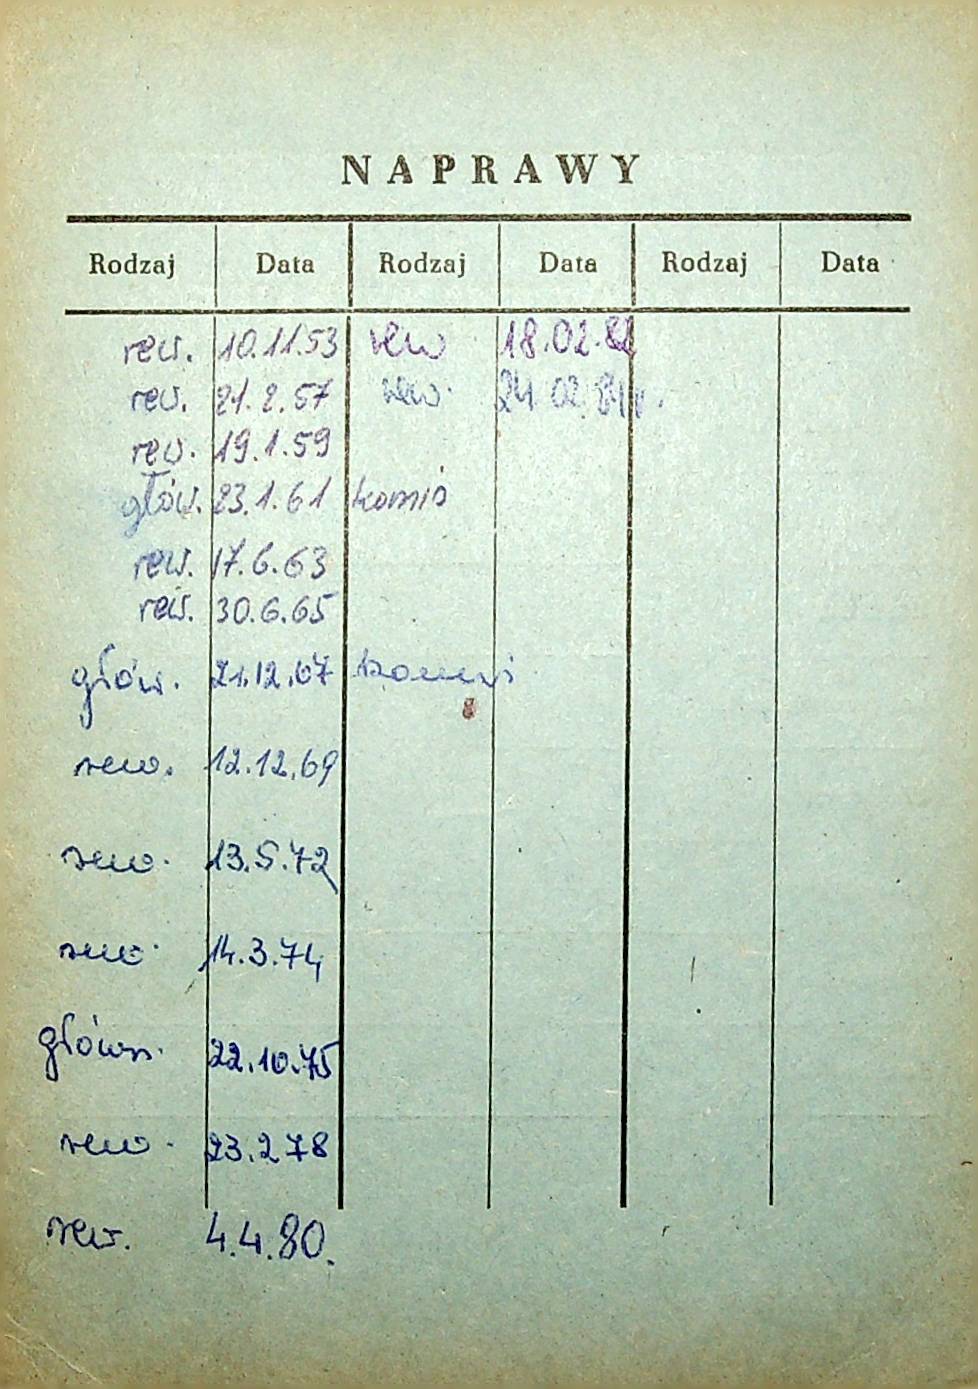 NAPRAWY
Rodzaj Data Rodzaj Data Rodzaj Data
rew. 10.11.53 rew 18.02.82
rew. 21.2.57 rew. 24.02.84r.
rew. 19.1.59
głów. 23.1.61 komis
rew. 17.6.63
rew. 30.6.65
głów. 21.12.67 komis
rew. 12.12.69
rew. 13.5.72
rew. 14.3.74
główn. 22.10.75
rew. 23.2.78
rew. 4.4.80.